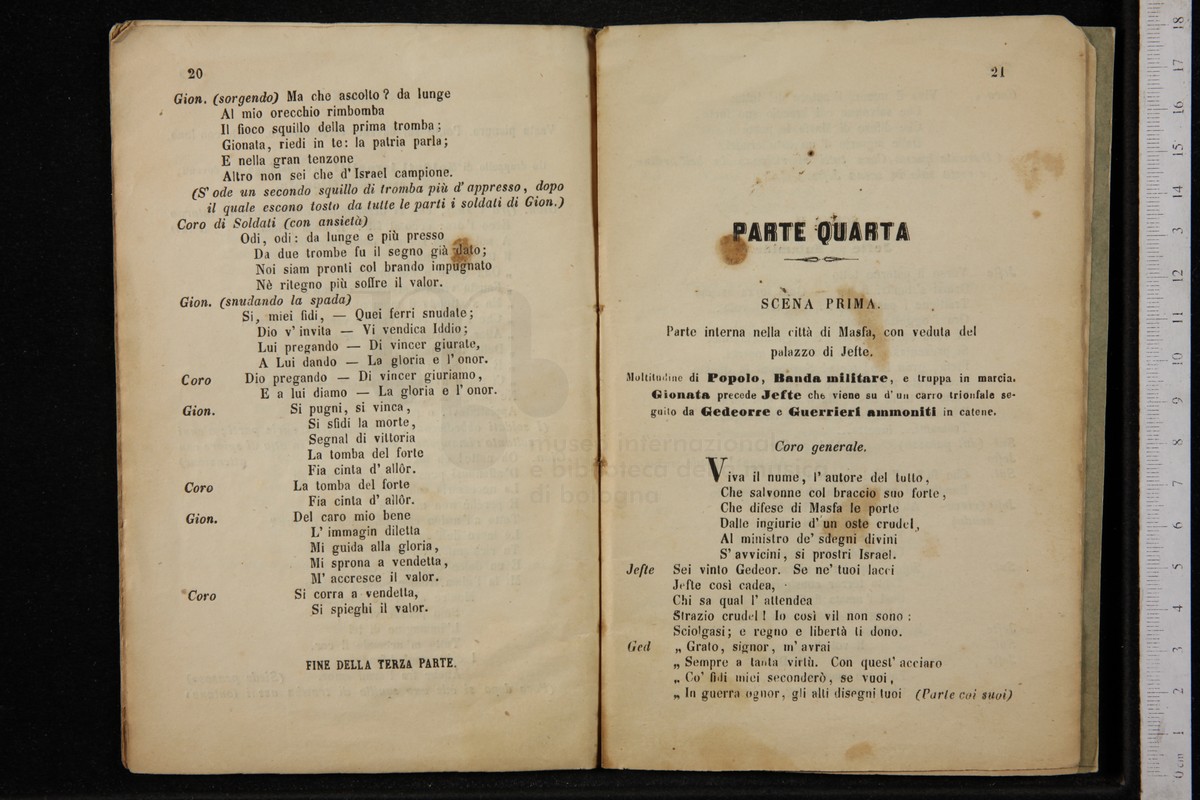 20
Gion. (sorgendo) Ma che ascolto? da lunge
Al mio orecchio rimbomba
Il fioco squillo della prima tromba;
Gionata, riedi in te: la patria parla;
E nella gran tenzone
Altro non sei che d' Israel campione.
(S' ode un secondo squillo di tromba più d' appresso, dopo
il quale escono tosto da tutte le parti i soldati di Gion.)
Coro di Soldati (con ansietà)
Odi, odi: da lunge e più presso
Da due trombe fu il segno già dato;
Noi siam pronti col brando impugnato
Nè ritegno più soffre il valor.
Gion. (snudando la spada)
Si, miei fidi, — Quei ferri snudate;
Dio v' invita — Vi vendica Iddio;
Lui pregando — Di vincer giurate,
A Lui dando — La gloria e l' onor.
Coro Dio pregando — Di vincer giuriamo,
E a lui diamo — La gloria e l' onor.
Gion. Si pugni, si vinca,
Si sfidi la morte,
Segnal di vittoria
La tomba del forte
Fia cinta d' allôr.
Coro La tomba del forte
Fia cinta d' allôr.
Gion. Del caro mio bene
L' immagin diletta
Mi guida alla gloria,
Mi sprona a vendetta,
M' accresce il valor.
Coro Si corra a vendetta,
Si spieghi il valor.
FINE DELLA TERZA PARTE.
21
PARTE QUARTA
SCENA PRIMA.
Parte interna nella città di Masfa, con veduta del
palazzo di Jefte.
Moltitudine di Popolo, Banda militare, e truppa in marcia.
Gionata precede Jefte che viene su d' un carro trionfale se-
guito da Gedeorre e Guerrieri ammoniti in catene.
Coro generale.
Viva il nume, l' autore del tutto,
Che salvonne col braccio suo forte,
Che difese di Masfa le porte
Dalle ingiurie d' un oste crudel,
Al ministro de' sdegni divini
S' avvicini, si prostri Israel.
Jefte Sei vinto Gedeor. Se ne' tuoi lacci
Jefte così cadea,
Chi sa qual l' attendea
Strazio crudel! Io così vil non sono:
Sciolgasi; e regno e libertà ti dono.
Ged „ Grato, signor, m' avrai
„ Sempre a tanta virtù. Con quest' acciaro
„ Co' fidi miei seconderò, se vuoi,
„ In guerra ognor, gli alti disegni tuoi (Parte coi suoi)
museo internazionale
e biblioteca della musica
di bologna